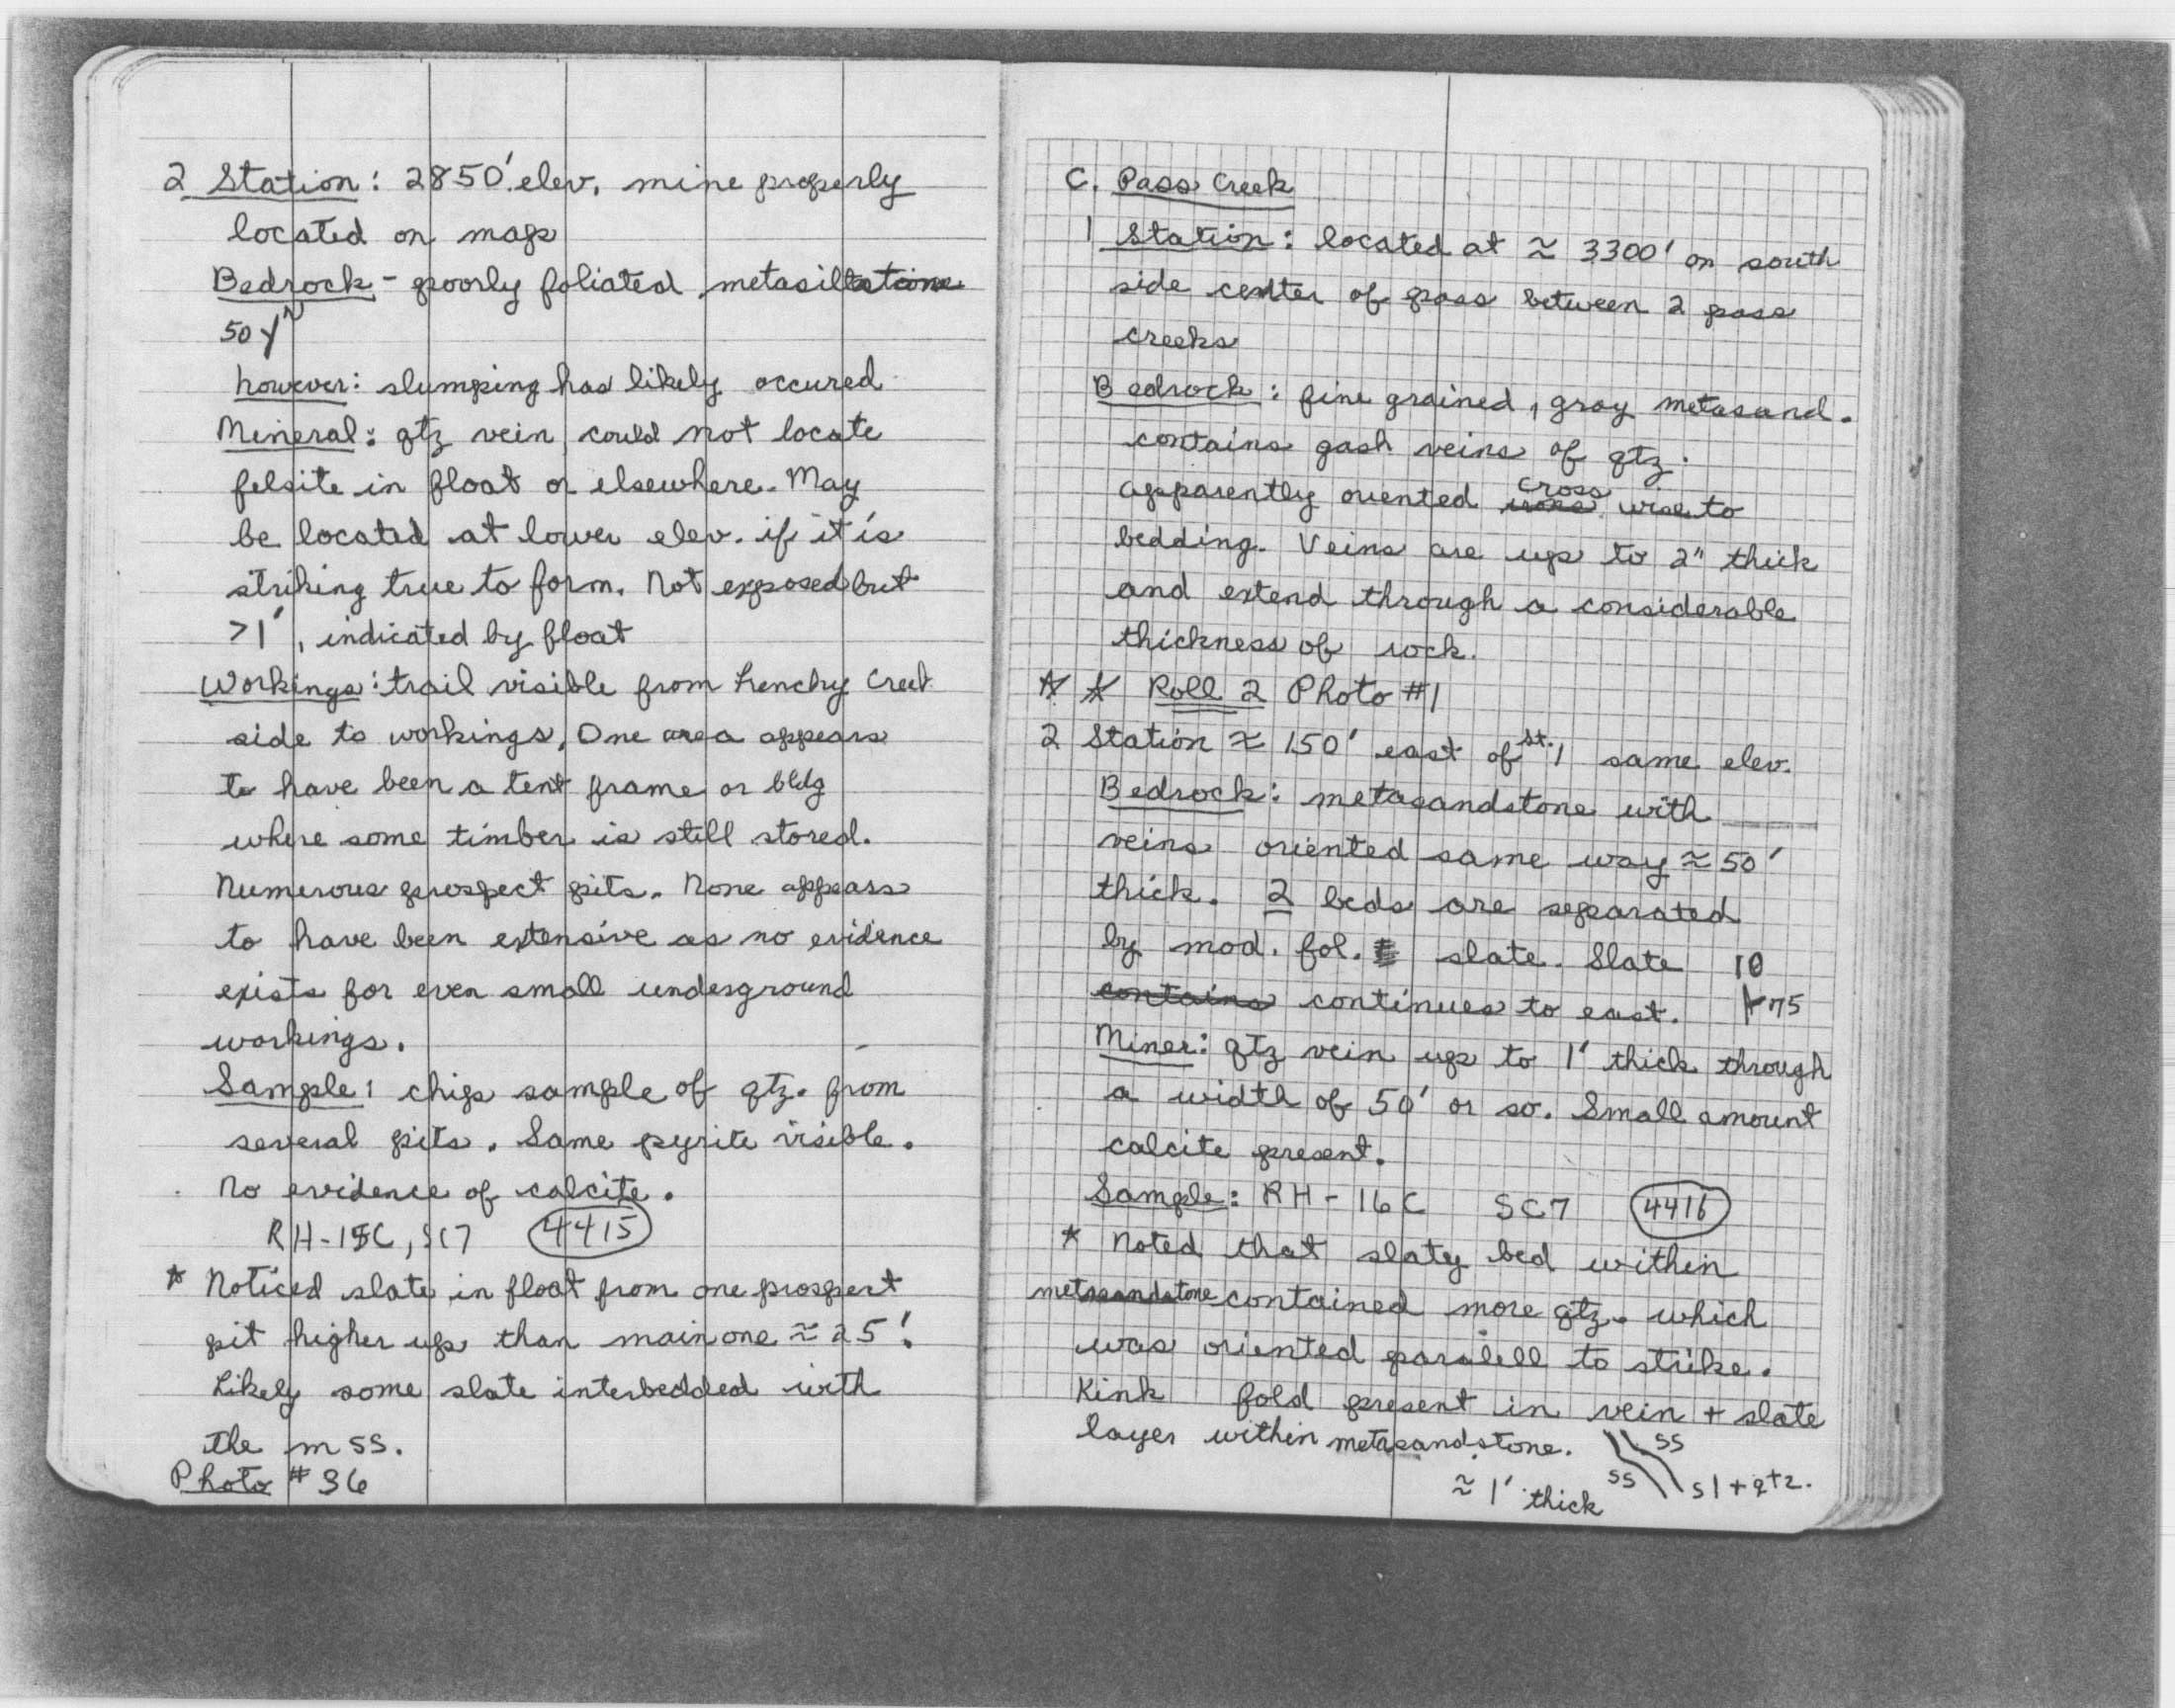 2 Station: 2850' elev. mine properly
located on map
Bedrock - poorly foliated metasiltstone
50
however: slumping has likely occured
Mineral: qtz vein could not locate
felsite in float or elsewhere. May
be located at lower elev. if it is
striking true to form. Not exposed but
>1', indicated by float
Workings: trail visible from Henchy Creek
side to workings. One area appears
to have been a tent frame or bldg
where some timber is still stored.
Numerous prospect pits. None appears
to have been extensive as no evidence
exists for even small underground
workings.
Sample: chip sample of qtz. from
several pits. Some pyrite visible.
No evidence of calcite.
RH-15C, SC7 4415
* Noticed slate in float from one prospect
pit higher up than main one ≈ 25'.
Likely some slate interbedded with
the mss.
Photo #36
C. Pass Creek
1 Station: located at ≈ 3300' on south
side center of pass between 2 pass
creeks
Bedrock: fine grained, gray metasand.
contains gash veins of qtz.
apparently oriented cross wise to
bedding. Veins are up to 2" thick
and extend through a considerable
thickness of rock.
* * Roll 2 Photo #1
2 Station ≈ 150' east of St. 1 same elev.
Bedrock: metasandstone with
veins oriented same way ≈ 50'
thick. 2 beds are separated
by mod. fol. slate. Slate 10
contains continues to east. 75
Miner: qtz vein up to 1' thick through
a width of 50' or so. Small amount
calcite present.
Sample: RH-16C SC7 4416
* Noted that slaty bed within
metasandstone contained more qtz. which
was oriented paralell to strike.
Kink fold present in vein + slate
layer within metasandstone. ss
≈ 1' thick ss sl + qtz.